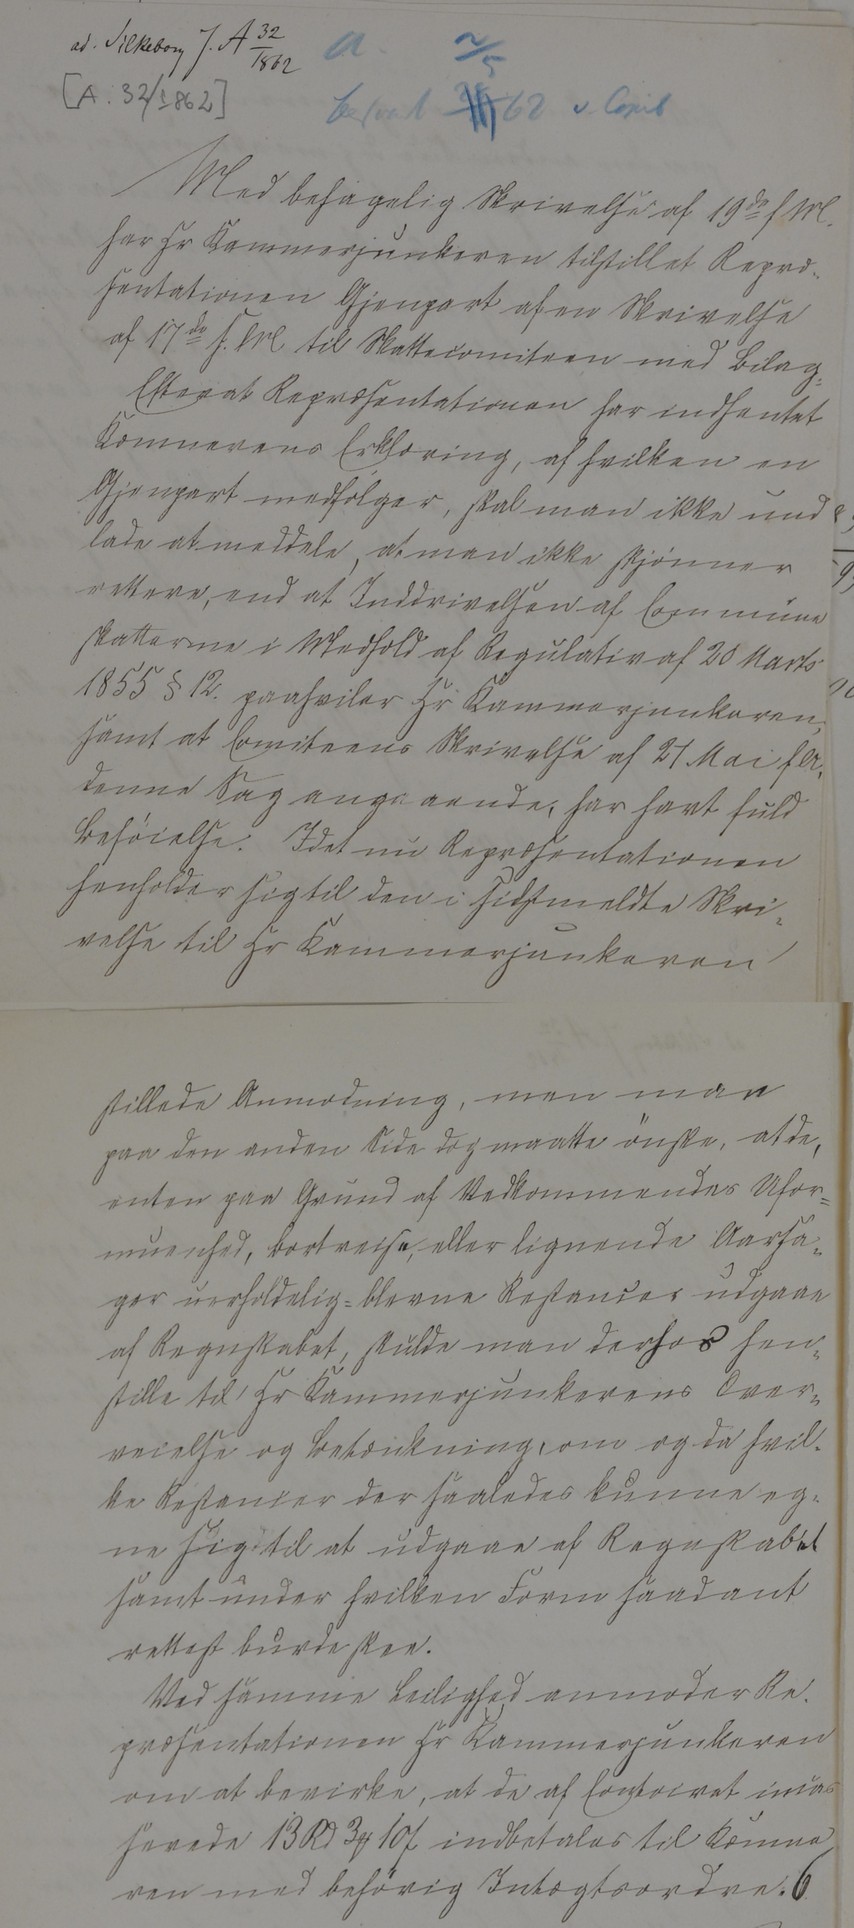 ad. Silkeborg J. A 32/1862
a. 2/5
[A. 32/1862]
besvart 62 v. Copie
Med behagelig Skrivelse af 19de f. M.
har Hr Kammerjunkeren tilstillet Repræ-
sentationen Gjenpart af en Skrivelse
af 17de f. M. til Skattecomiteen med Bilag.
Efterat Repræsentationen har indhentet
Kæmnerens Erklæring, af hvilken en
Gjenpart medfølger, skal man ikke und
lade at meddele, at man ikke skjønner
rettere, end at Inddrivelsen af Commune
skatterne i Medhold af Regulativ af 20 Marts
1855 § 12. paahviler Hr Kammerjunkeren,
samt at Comiteens Skrivelse af 21 Mai f. A.
denne Sag angaaende, har havt fuld
Beføielse. Idet nu Repræsentationen
henholder sig til den i sidstmeldte Skri-
velse til Hr Kammerjunkeren
stillede Anmodning, men man
paa den anden Side dog maatte ønske, at de,
enten paa Grund af Vedkommendes Ufor=
muenhed, bortreise, eller lignende Aarsa-
ger uerholdelig=blevne Restancer udgaae
af Regnskabet, skulde man derhos hen-
stille til Hr Kammerjunkerens Over-
veielse og Betænkning, om og da hvil-
ke Restancer der saaledes kunne eg-
ne sig til at udgaae af Regnskabet
samt under hvilken Form saadant
rettest burde skee.
Ved samme Leilighed anmoder Re-
præsentationen Hr Kammerjunkeren
om at bevirke, at de af Contoiret incas
serede 13 Rd 3 ₰ 10 ſ indbetales til Kæmne
ren med behørig Indtægtsordre. 6